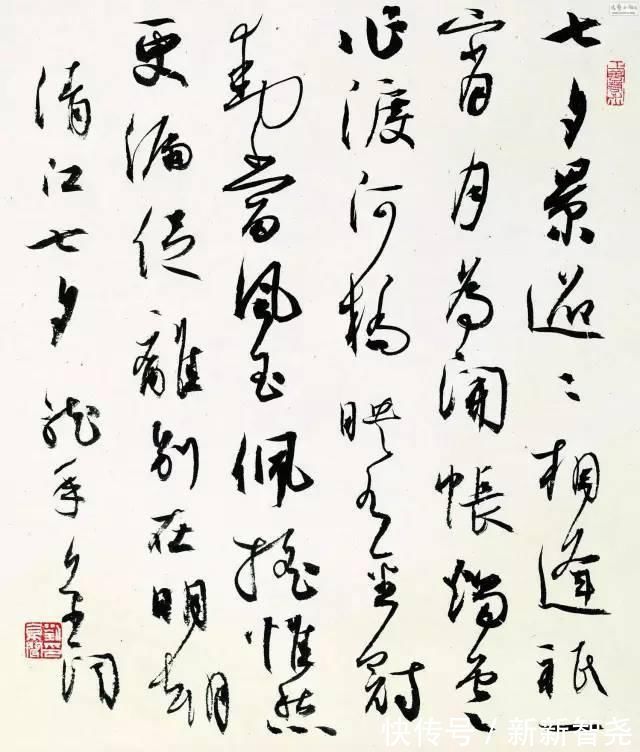 七夕景迢〻相逢祇一
宵月為開帳燭雲
作渡河橋映水金冠
動當風玉佩摇惟愁
更漏促離別在明朝
清江七夕
快传号/新新智尧